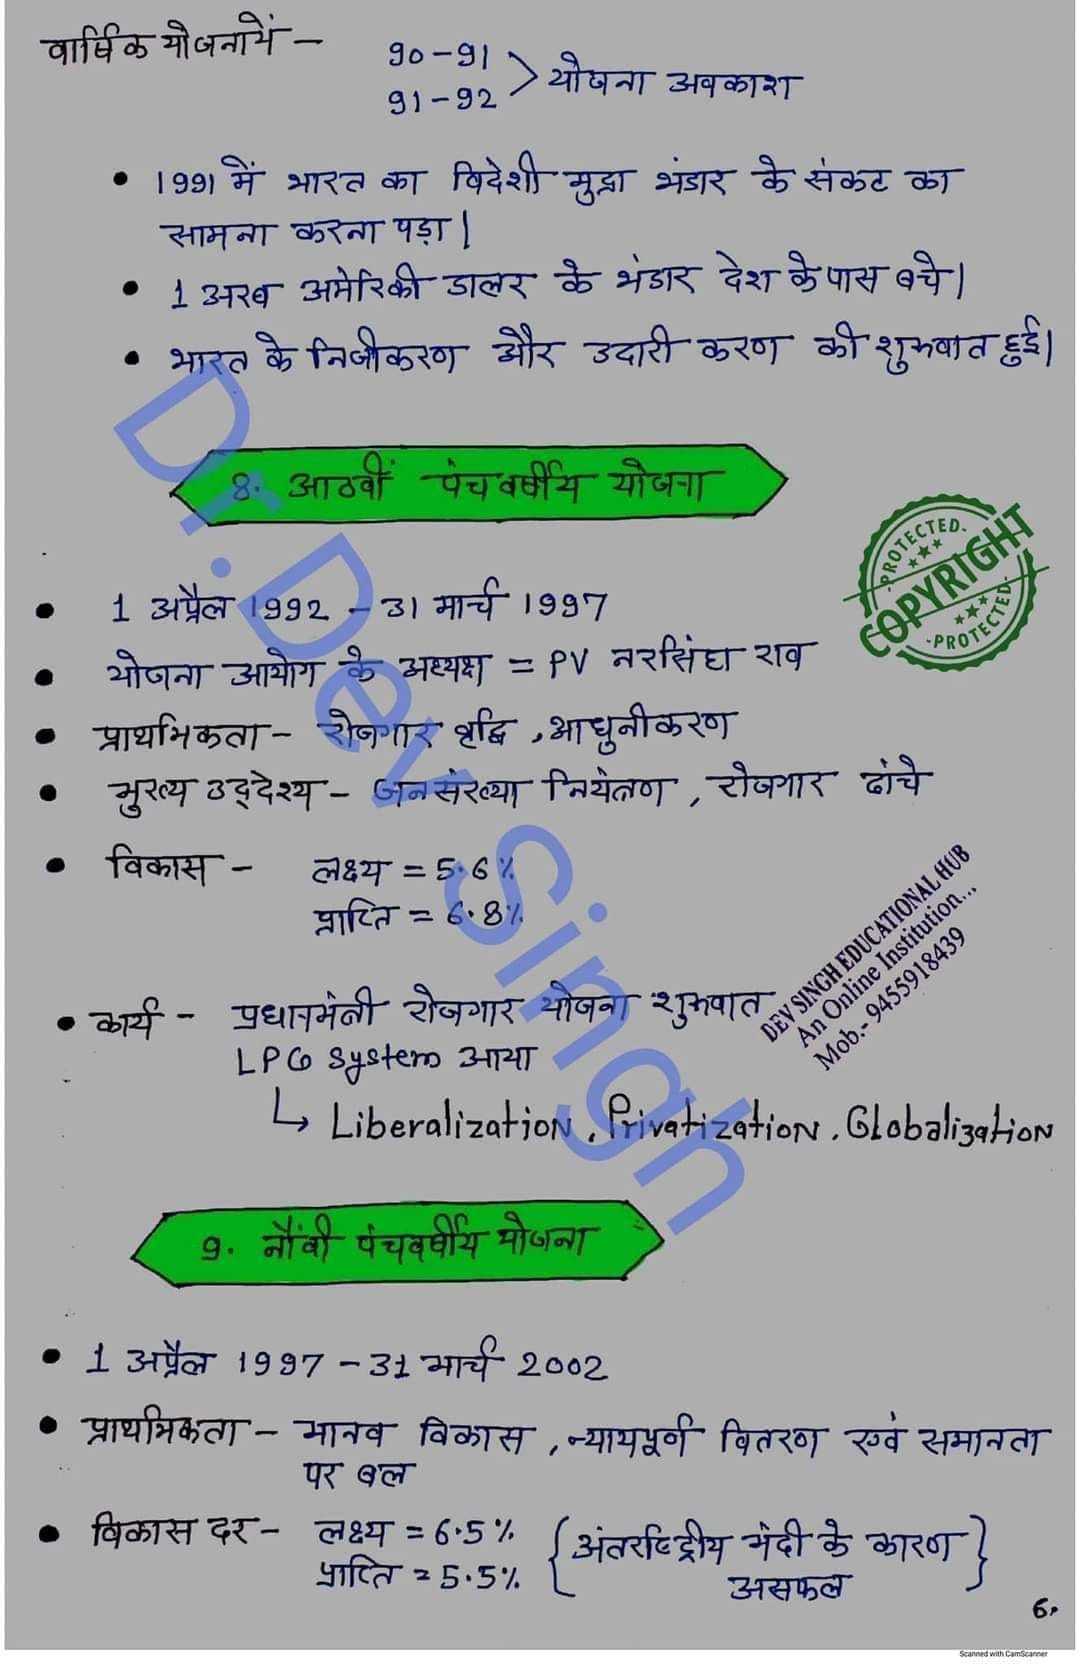 वार्षिक योजनायें -
90-91
91-92 > योजना अवकाश
• 1991 में भारत का विदेशी मुद्रा भंडार के संकट का
सामना करना पड़ा |
• 1 अरब अमेरिकी डालर के भंडार देश के पास बचे |
• भारत के निजीकरण और उदारी करण की शुरुवात हुई |
8. आठवीं पंचवर्षीय योजना
PROTECTED.
COPYRIGHT
PROTECTED
• 1 अप्रैल 1992 - 31 मार्च 1997
• योजना आयोग के अध्यक्ष = PV नरसिंघा राव
• प्राथमिकता - रोजगार वृद्धि , आधुनीकरण
• मुख्य उद्देश्य - जनसंख्या नियंतण , रोजगार ढांचे
• विकास - लक्ष्य = 5.6%
प्राप्ति = 6.8%
DEV SINGH EDUCATIONAL HUB
An Online Institution...
Mob.- 9455918439
• कार्य - प्रधानमंत्री रोजगार योजना शुरुवात
LPG System आया
↳ Liberalization , Privatization , Globalization
9. नौंवी पंचवर्षीय योजना
• 1 अप्रैल 1997 - 31 मार्च 2002
• प्राथमिकता - मानव विकास , न्यायपूर्ण वितरण एवं समानता
पर बल
• विकास दर - लक्ष्य = 6.5% { अंतर्राष्ट्रीय मंदी के कारण }
प्राप्ति = 5.5% असफल
6.
Dr. Dev Singh
Scanned with CamScanner